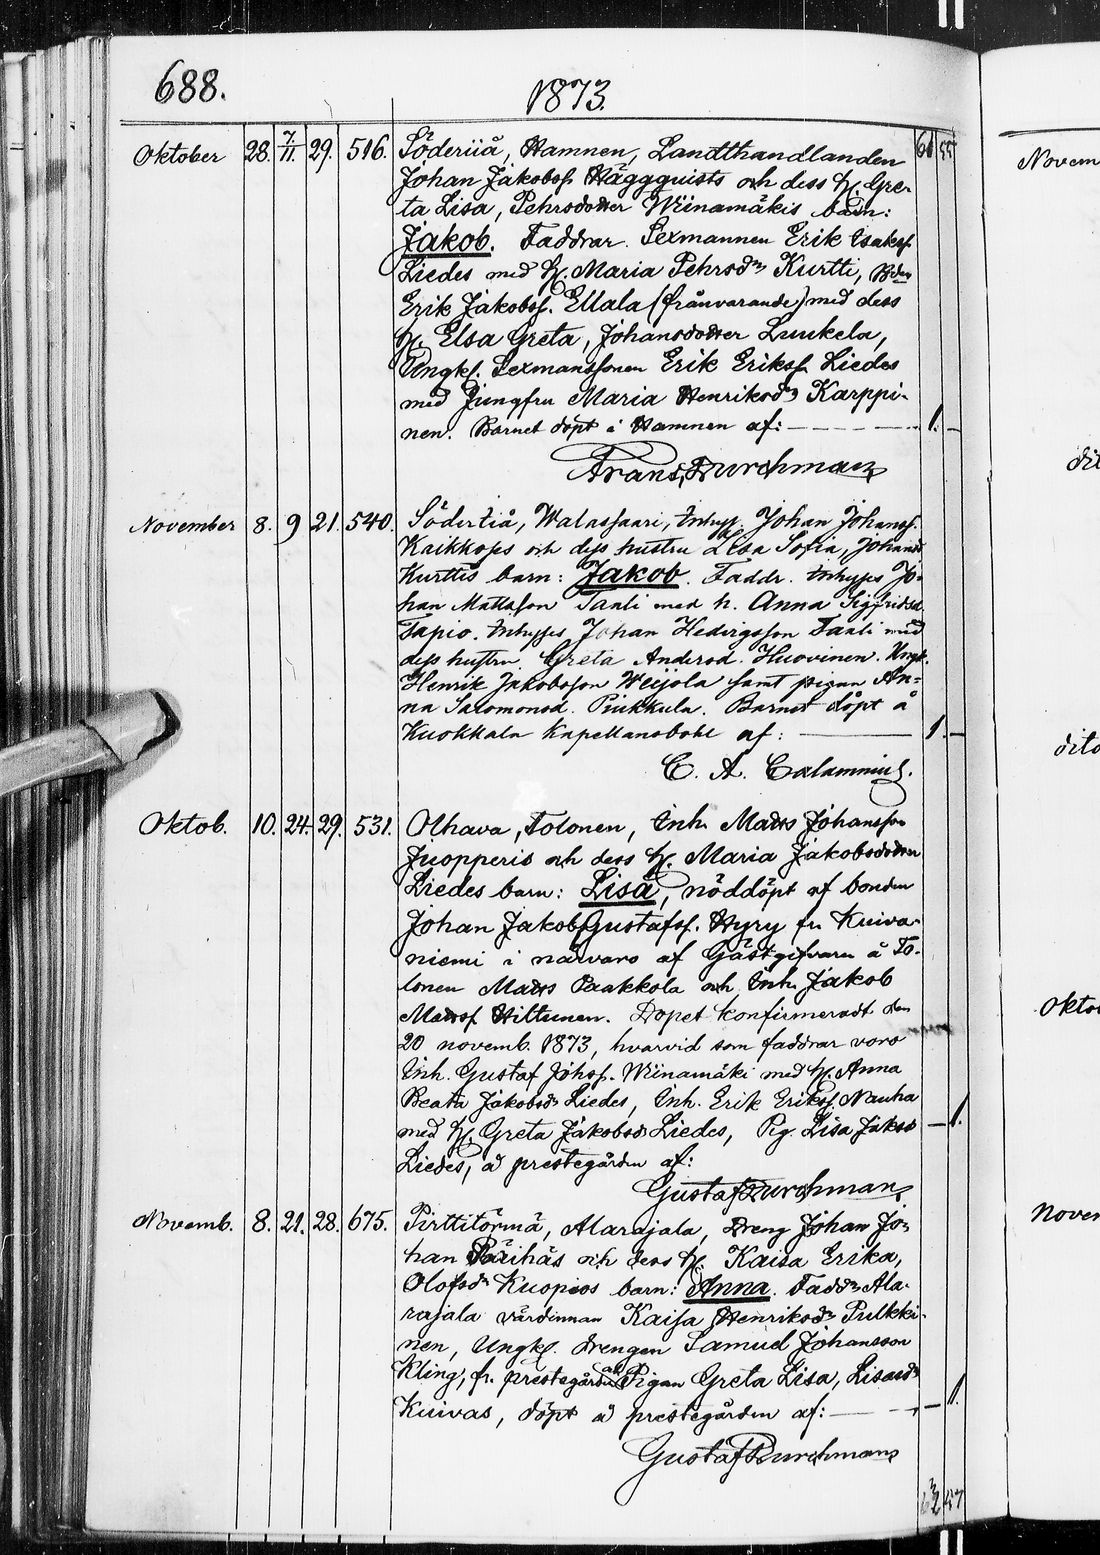 688.
1873.
Oktober 28. 7/11. 29. 516. Söderiiå, Hamnen, Landthandlanden 61 55
Johan Jakobss. Häggquists och dess h. Gre-
ta Lisa, Pehrsdotter Wiinamäkis barn:
Jakob. Faddrar. Sexmannen Erik Isakss.
Liedes med h. Maria Pehrsdr Kurtti, Bdn
Erik Jakobss. Ellala (frånvarande) med dess
h. Elsa Greta, Johansdotter Luukela,
Ungk. Sexmanssonen Erik Erikss. Liedes
med Jungfru Maria Henriksdr Karppi-
nen. Barnet döpt i Hamnen af: 1. –
Frans Durchman
November 8. 9 21. 540. Söderiiå, Walassaari, Inhys. Johan Johanss.
Kaikkojes och dess hustru Lisa Sofia, Johansd
Kurttis barn: Jakob. Faddr. Inhyses Jo-
han Mattsson Taali med h. Anna Sigfridsd.
Tapio. Inhyses Johan Hedvigsson Taali med
dess hustru. Greta Andersd. Huovinen. Ungk.
Henrik Jakobsson Weijola samt pigan An-
na Salomonsd. Pirkkula. Barnet döpt å
Kuokkala Kapellansbohl af: 1. –
C. A. Calamnius.
Oktob. 10. 24. 29. 531. Olhava, Tolonen, Inh. Matts Johansson
Juopperis och dess h. Maria Jakobsdotter
Liedes barn: Lisa, nöddöpt af bonden
Johan Jakob Gustafss. Hyry fr. Kuiva-
niemi i närvaro af Gästgifvaren å To-
lonen Matts Paakkola och Inh. Jakob
Mattss. Hiltunen. Dopet konfirmeradt den
20 novemb. 1873, hvarvid som faddrar voro
Inh. Gustaf Johss. Wiinamäki med h. Anna
Beata Jakobsdr Liedes, Inh. Erik Erikss. Nauha
med h. Greta Jakobsdr Liedes, Pig. Lisa Jaksd – 1.
Liedes, å prestegården af:
Gustaf Durchman
Novemb. 8. 21. 28. 675. Pirttitörmä, Alarajala, Dreng Johan Jo-
han Päihäs och dess h. Kaisa Erika,
Olofsdr Kuopios barn: Anna. Faddr Ala-
rajala värdinnan Kaisa Henriksdr Pulkki-
nen, Ungk. drengen Samuel Johansson
Kling, fr. prestegården Pigan Greta Lisa, Lisasdr
Kuivas, döpt å prestegården af: – 1.
Gustaf Durchman
57
Novem
dit
dito
Okto
Noven